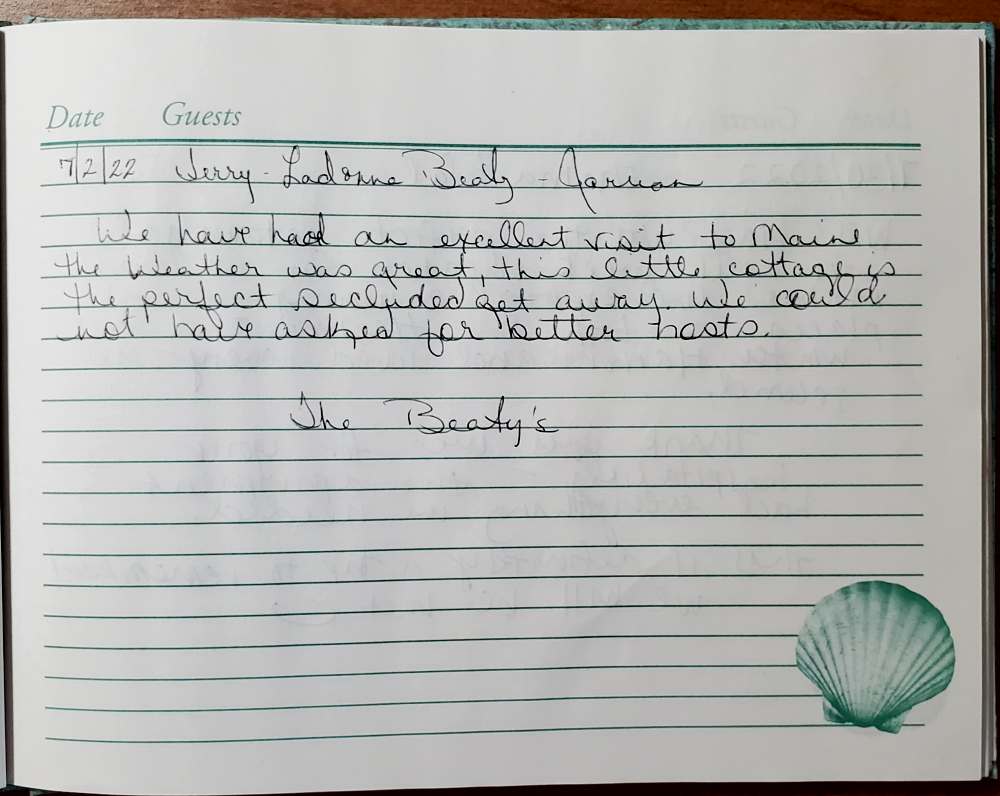 Date Guests
7/2/22 Jerry - Ladonna Beaty -
We have had an excellent visit to Maine
the weather was great, this little cottage is
the perfect secluded get away. We could
not have asked for better hosts.
The Beaty's